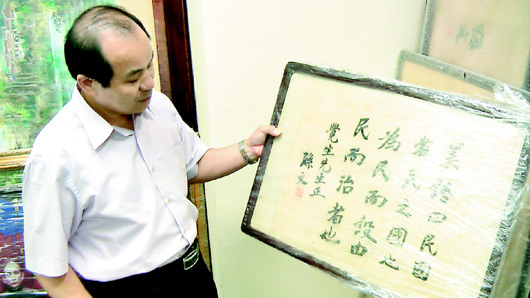 語曰民國
者民之國也
為民而設由
民而治者也
覺生先生正
孫文